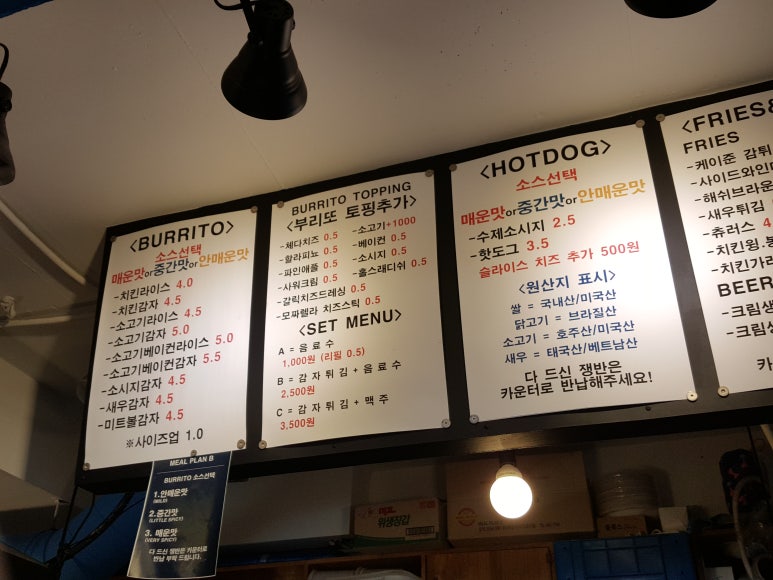 <BURRITO>
소스선택
매운맛or중간맛or안매운맛
-치킨라이스 4.0
-치킨감자 4.5
-소고기라이스 4.5
-소고기감자 5.0
-소고기베이컨라이스 5.0
-소고기베이컨감자 5.5
-소시지감자 4.5
-새우감자 4.5
-미트볼감자 4.5
※사이즈업 1.0
MEAL PLAN B
BURRITO 소스선택
1.안매운맛
(MILD)
2.중간맛
(LITTLE SPICY)
3. 매운맛
(VERY SPICY)
다 드신 쟁반은 카운터로
반납 부탁 드립니다.
BURRITO TOPPING
<부리또 토핑추가>
-체다치즈 0.5 -소고기+1000
-할라피뇨 0.5 -베이컨 0.5
-파인애플 0.5 -소시지 0.5
-사워크림 0.5 -홀스래디쉬 0.5
-갈릭치즈드레싱 0.5
-모짜렐라 치즈스틱 0.5
<SET MENU>
A = 음료수
1,000원 (리필 0.5)
B = 감자튀김 + 음료수
2,500원
C = 감자튀김 + 맥주
3,500원
<HOTDOG>
소스선택
매운맛or중간맛or안매운맛
-수제소시지 2.5
-핫도그 3.5
슬라이스 치즈 추가 500원
<원산지 표시>
쌀 = 국내산/미국산
닭고기 = 브라질산
소고기 = 호주산/미국산
새우 = 태국산/베트남산
다 드신 쟁반은
카운터로 반납해주세요!
<FRIES&
FRIES
-케이준 감튀
-사이드와인더
-해쉬브라운
-새우튀김
-츄러스 4
-치킨윙,봉
-치킨가라
BEER
-크림생
-크림생
위생장갑